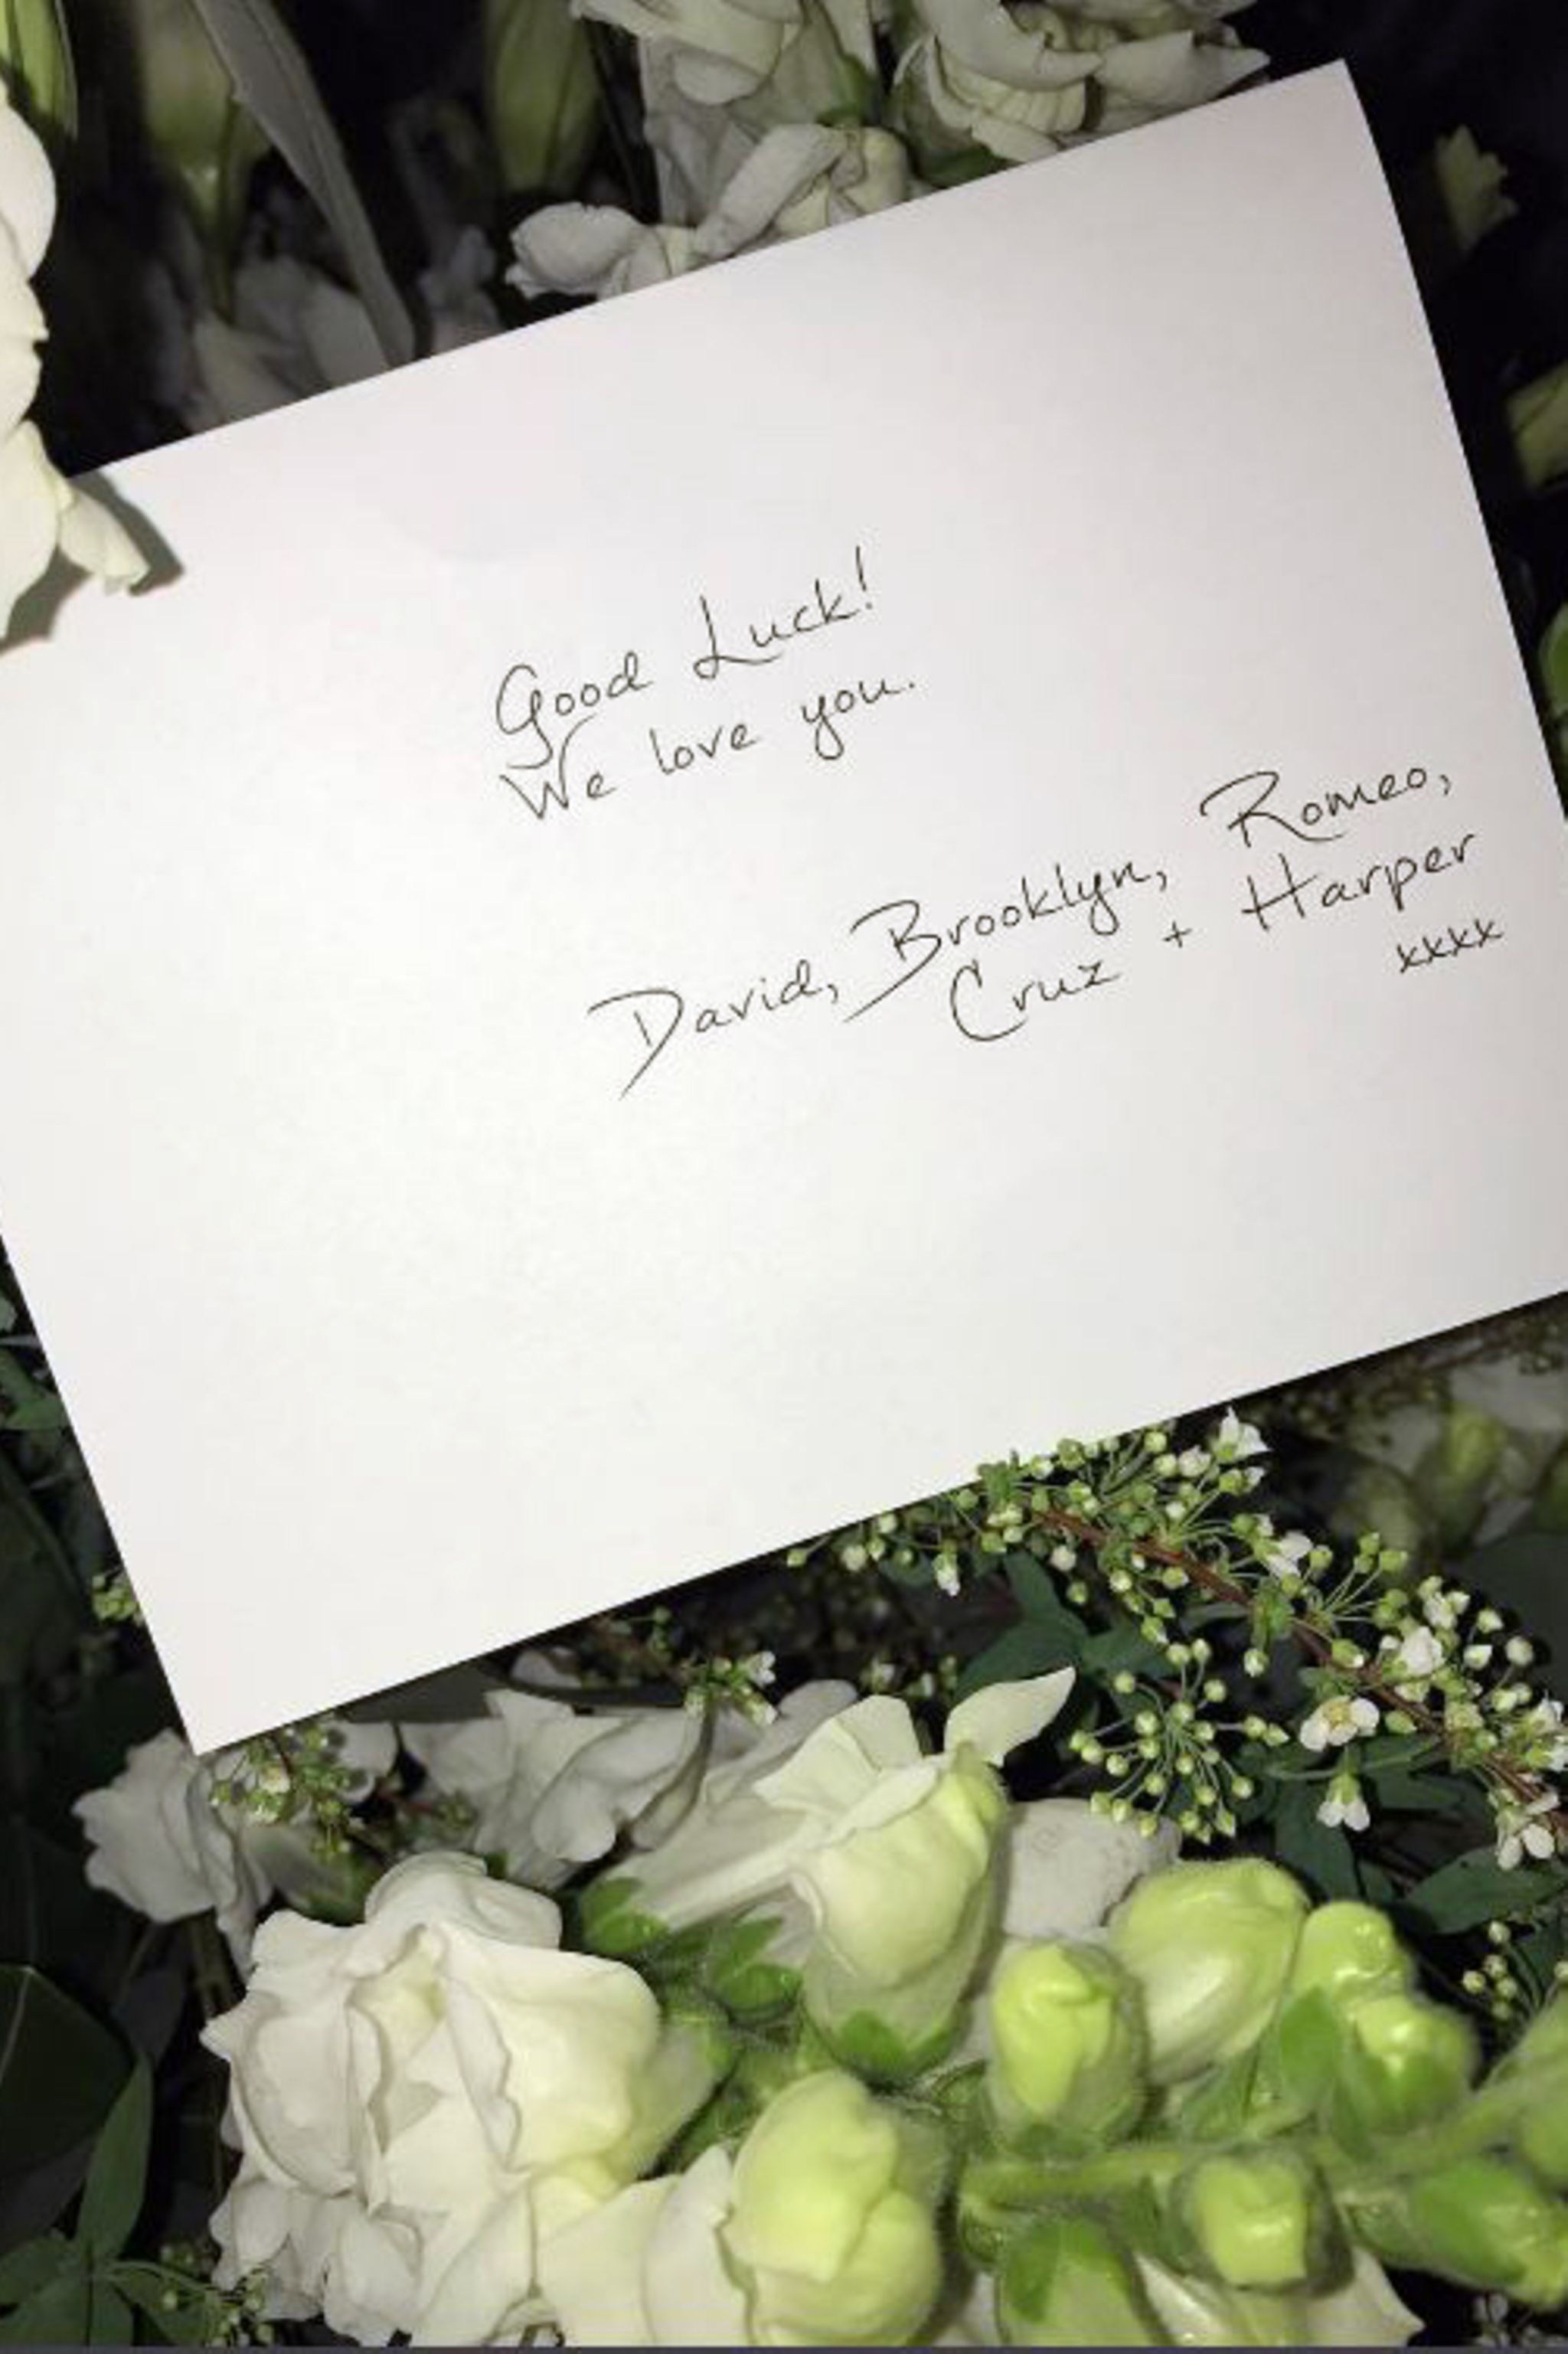 Good Luck!
We love you.
David, Brooklyn, Romeo,
Cruz + Harper
xxxx